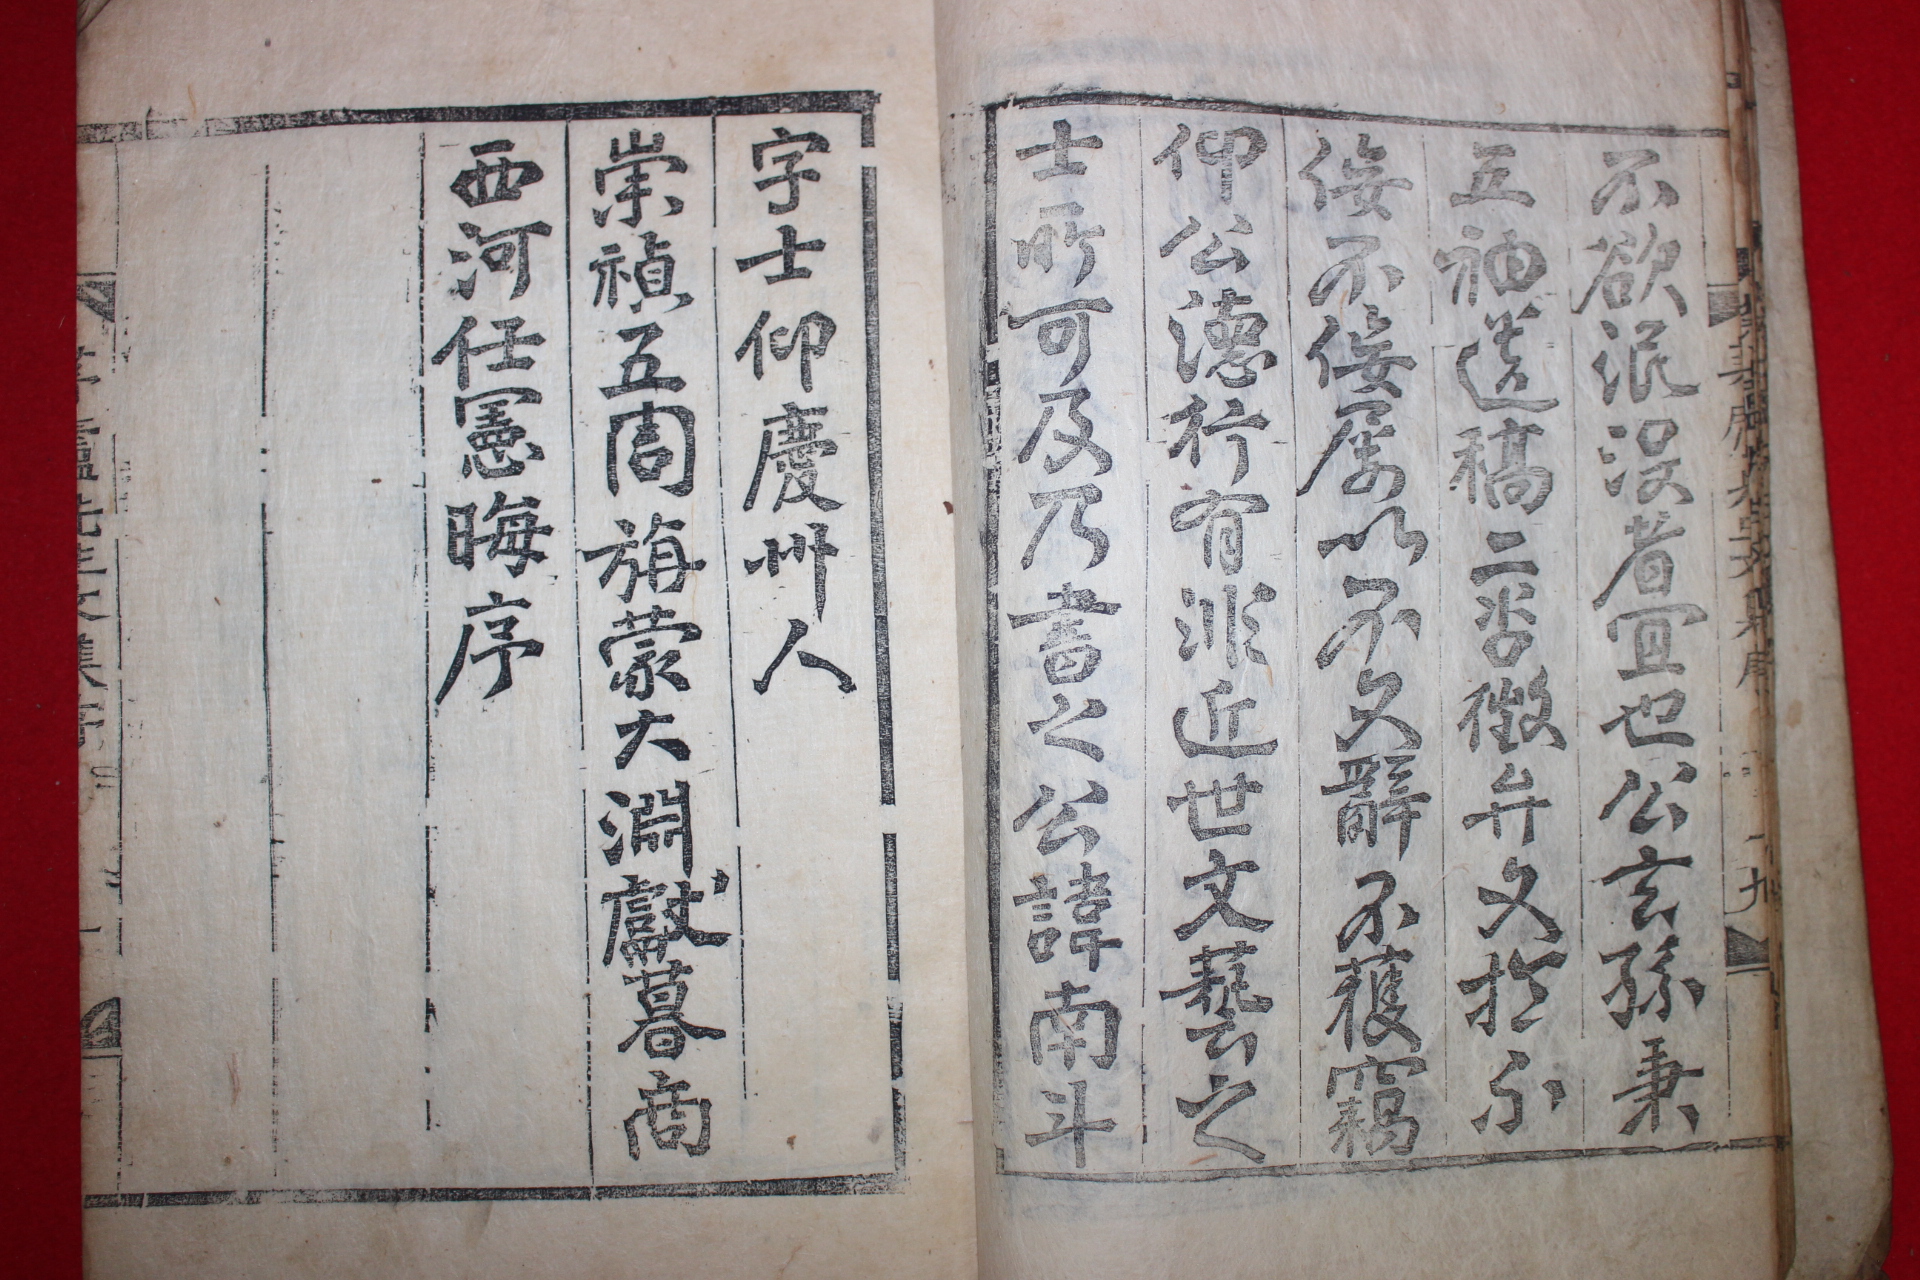 不欲泯没者宜也公玄孫秉
五袖遺稿二沓徵弁文於不
佞不佞屡以不文辭不獲竊
仰公德行有非近世文藝之
士所可及乃書之公諱南斗
字士仰慶州人
崇禎五周旃蒙大淵獻暮商
西河任憲晦序